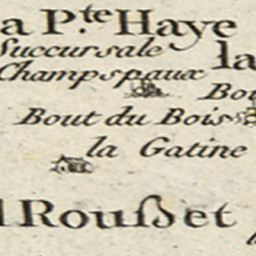 a P.te Haye
Succursale
la
Champspaux
Bou
Bout du Bois
la Gatine
l Roußet